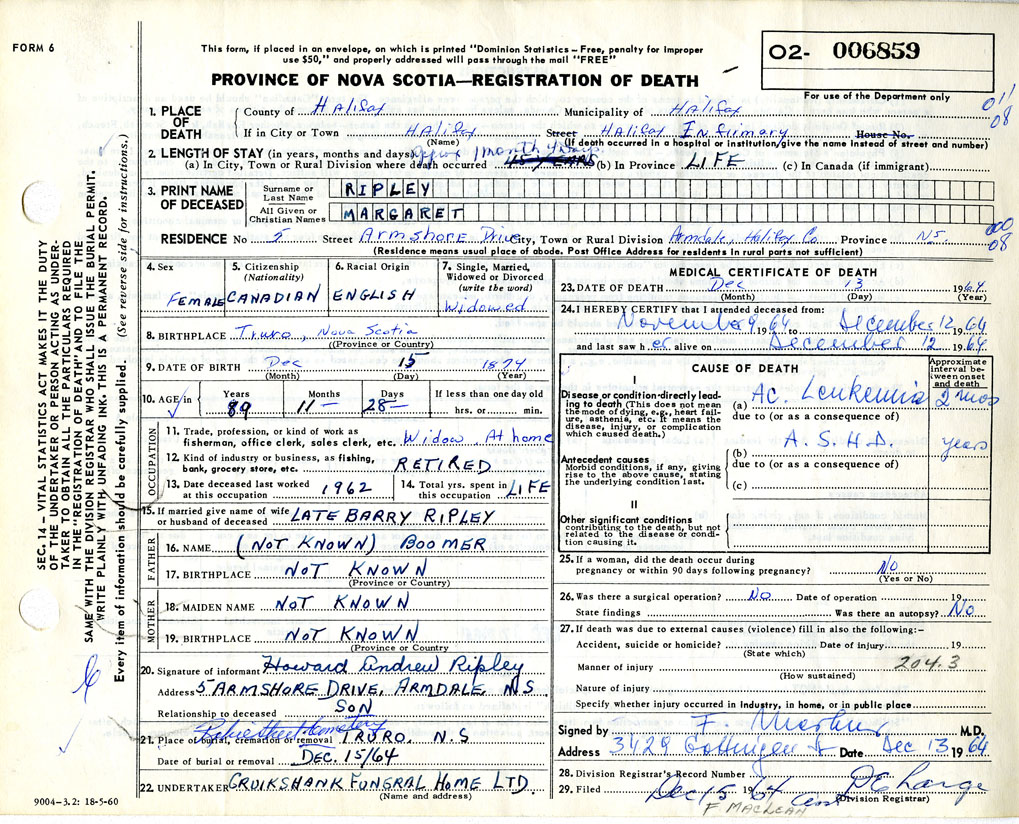 FORM 6
This form, if placed in an envelope, on which is printed "Dominion Statistics – Free, penalty for improper
use $50," and properly addressed will pass through the mail "FREE"
PROVINCE OF NOVA SCOTIA—REGISTRATION OF DEATH
02- 006859
For use of the Department only
011
08
1. PLACE OF DEATH
County of Halifax Municipality of Halifax
If in City or Town Halifax Street Halifax Infirmary House No.
(Name) (If death occurred in a hospital or institution, give the name instead of street and number)
2. LENGTH OF STAY (in years, months and days) Approx 1 month
(a) In City, Town or Rural Division where death occurred 45 years (b) In Province LIFE (c) In Canada (if immigrant)
3. PRINT NAME OF DECEASED
Surname or Last Name RIPLEY
All Given or Christian Names MARGARET
000
08
RESIDENCE No 5 Street Armshore Drive City, Town or Rural Division Armdale, Halifax Co. Province N.S.
(Residence means usual place of abode. Post Office Address for residents in rural parts not sufficient)
4. Sex
Female
5. Citizenship
(Nationality)
CANADIAN
6. Racial Origin
ENGLISH
7. Single, Married, Widowed or Divorced
(write the word)
Widowed
8. BIRTHPLACE Truro, Nova Scotia
(Province or Country)
9. DATE OF BIRTH Dec 15 1874
(Month) (Day) (Year)
10. AGE in Years Months Days If less than one day old
89 11 28 hrs. or min.
OCCUPATION
11. Trade, profession, or kind of work as
fisherman, office clerk, sales clerk, etc. Widow At home
12. Kind of industry or business, as fishing,
bank, grocery store, etc. RETIRED
13. Date deceased last worked
at this occupation 1962
14. Total yrs. spent in
this occupation LIFE
15. If married give name of wife
or husband of deceased LATE BARRY RIPLEY
FATHER
16. NAME (NOT KNOWN) BOOMER
17. BIRTHPLACE NOT KNOWN
(Province or Country)
MOTHER
18. MAIDEN NAME NOT KNOWN
19. BIRTHPLACE NOT KNOWN
(Province or Country)
20. Signature of informant Howard Andrew Ripley
Address 5 ARMSHORE DRIVE, ARMDALE, N S
Relationship to deceased SON
Robie Street Cemetery
21. Place of burial, cremation or removal TRURO, N.S
Date of burial or removal DEC. 15/64
22. UNDERTAKER CRUIKSHANK FUNERAL HOME LTD.
(Name and address)
9004–3.2: 18-5-60
MEDICAL CERTIFICATE OF DEATH
23. DATE OF DEATH Dec 13 1964
(Month) (Day) (Year)
24. I HEREBY CERTIFY that I attended deceased from:
November 9 1964 to December 12 1964
and last saw her alive on December 12 1964
CAUSE OF DEATH
Approximate interval between onset and death
I
Disease or condition directly leading to death (This does not mean the mode of dying, e.g., heart failure, asthenia, etc. It means the disease, injury, or complication which caused death.)
(a) Ac. Leukemia 2 mos
due to (or as a consequence of)
A. S. H. D. years
Antecedent causes
Morbid conditions, if any, giving rise to the above cause, stating the underlying condition last.
(b)
due to (or as a consequence of)
(c)
II
Other significant conditions
contributing to the death, but not related to the disease or condition causing it.
25. If a woman, did the death occur during
pregnancy or within 90 days following pregnancy? No
(Yes or No)
26. Was there a surgical operation? No Date of operation 19
State findings Was there an autopsy? No
27. If death was due to external causes (violence) fill in also the following:–
Accident, suicide or homicide? Date of injury 19
(State which)
204.3
Manner of injury
(How sustained)
Nature of injury
Specify whether injury occurred in industry, in home, or in public place
Signed by F. M.D.
Address 3429 Gottingen St Date Dec 13 1964
28. Division Registrar's Record Number
29. Filed Dec 15 1964
(Division Registrar)
F. MACLEAN
SEC. 14 – VITAL STATISTICS ACT MAKES IT THE DUTY
OF THE UNDERTAKER OR PERSON ACTING AS UNDER-
TAKER TO OBTAIN ALL THE PARTICULARS REQUIRED
IN THE "REGISTRATION OF DEATH" AND TO FILE THE
SAME WITH THE DIVISION REGISTRAR WHO SHALL ISSUE THE BURIAL PERMIT.
WRITE PLAINLY WITH UNFADING INK. THIS IS A PERMANENT RECORD.
Every item of information should be carefully supplied. (See reverse side for instructions.)